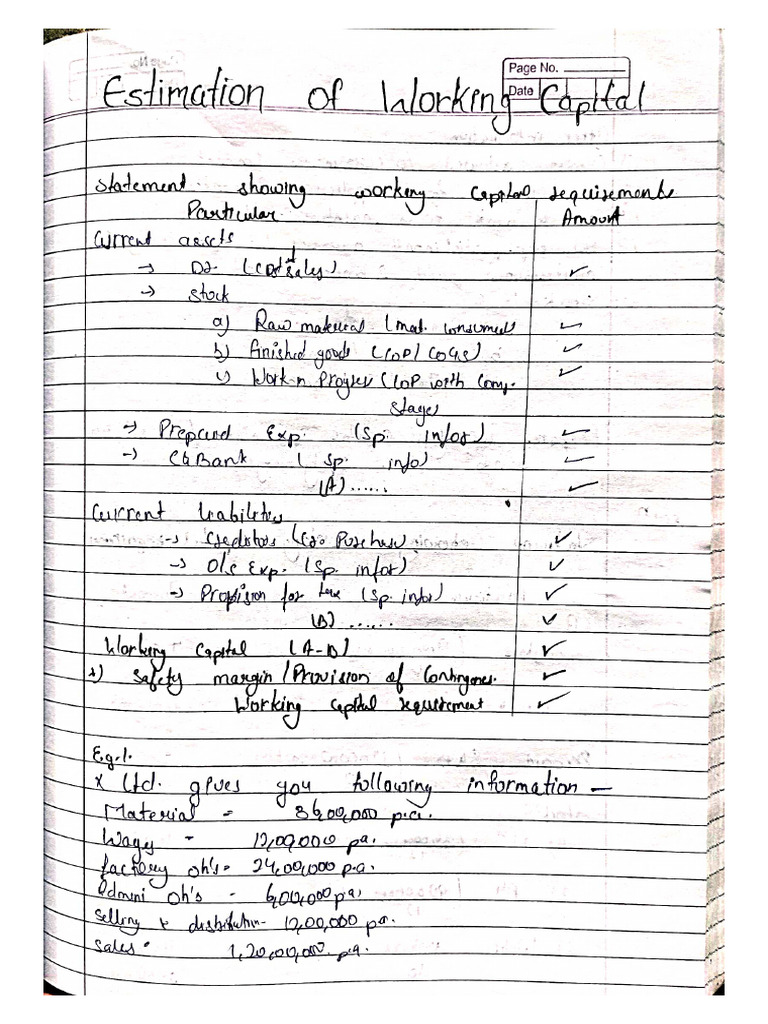 Page No.
Date
Estimation of Working Capital
Statement showing working Capital requirements
Particular Amount
Current assets
→ Dr (Cost of Sales) ✓
→ Stock
a) Raw material (mat. consumed) ✓
b) Finished goods (COP/COGS) ✓
c) Work n Progress (COP with Comp. ✓
stages
→ Prepaid Exp. (Sp. infor) ✓
→ C&Bank (Sp. info) ✓
(A)...... ✓
Current Liabilities
→ Creditors (Cr. Purchase) ✓
→ O/s Exp. (Sp. infor) ✓
→ Provision for tax (Sp. infor) ✓
(B)...... ✓
Working Capital (A-B) ✓
+) Safety margin/Provision of Contingencies. ✓
Working capital requirement ✓
Eg.1.
X Ltd. gives you following information —
Material = 36,00,000 p.a.
Wages = 12,00,000 pa.
factory oh's = 24,00,000 p.a.
Admini oh's - 6,00,000 pa,
Selling & distribution- 12,00,000 pa.
Sales = 1,20,00,000 p.a.